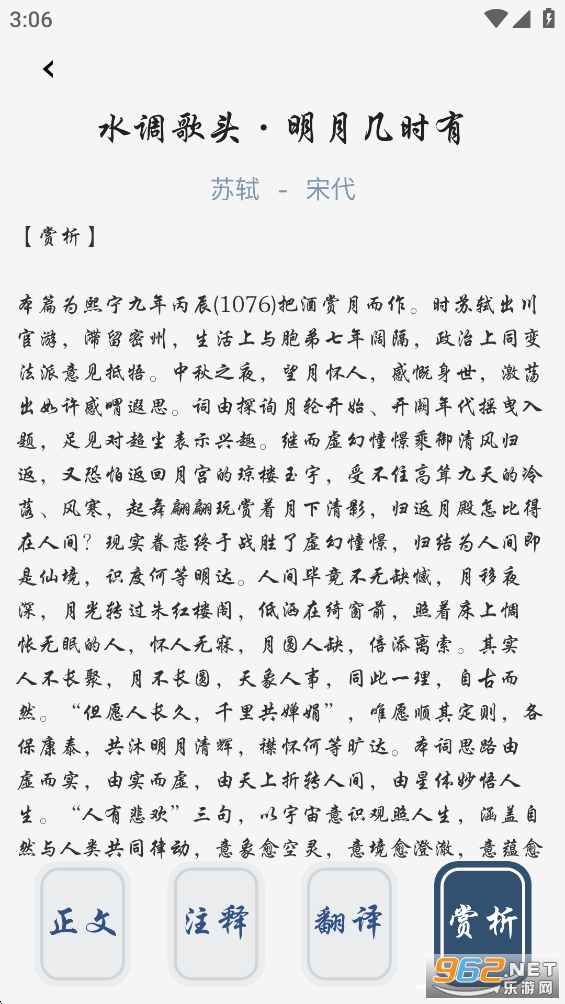 3:06
水调歌头·明月几时有
苏轼 - 宋代
【赏析】
本篇为熙宁九年丙辰(1076)把酒赏月而作。时苏轼出川
官游，滞留密州，生活上与胞弟七年阔隔，政治上同变
法派意见抵牾。中秋之夜，望月怀人，感慨身世，激荡
出如许感喟遐思。词由探询月轮开始、开阙年代摇曳入
题，足见对超尘表示兴趣。继而虚幻憧憬乘御清风归
返，又恐怕返回月宫的琼楼玉宇，受不住高耸九天的冷
落、风寒，起舞翩翩玩赏着月下清影，归返月殿怎比得
在人间？现实眷恋终于战胜了虚幻憧憬，归结为人间即
是仙境，识度何等明达。人间毕竟不无缺憾，月移夜
深，月光转过朱红楼阁，低洒在绮窗前，照着床上惆
怅无眠的人，怀人无寐，月圆人缺，倍添离索。其实
人不长聚，月不长圆，天象人事，同此一理，自古而
然。“但愿人长久，千里共婵娟”，唯愿顺其定则，各
保康泰，共沐明月清辉，襟怀何等旷达。本词思路由
虚而实，由实而虚，由天上折转人间，由星体妙悟人
生。“人有悲欢”三句，以宇宙意识观照人生，涵盖自
然与人类共同律动，意象愈空灵，意境愈澄澈，意蕴愈
正文
注释
翻译
赏析
962.NET
乐游网